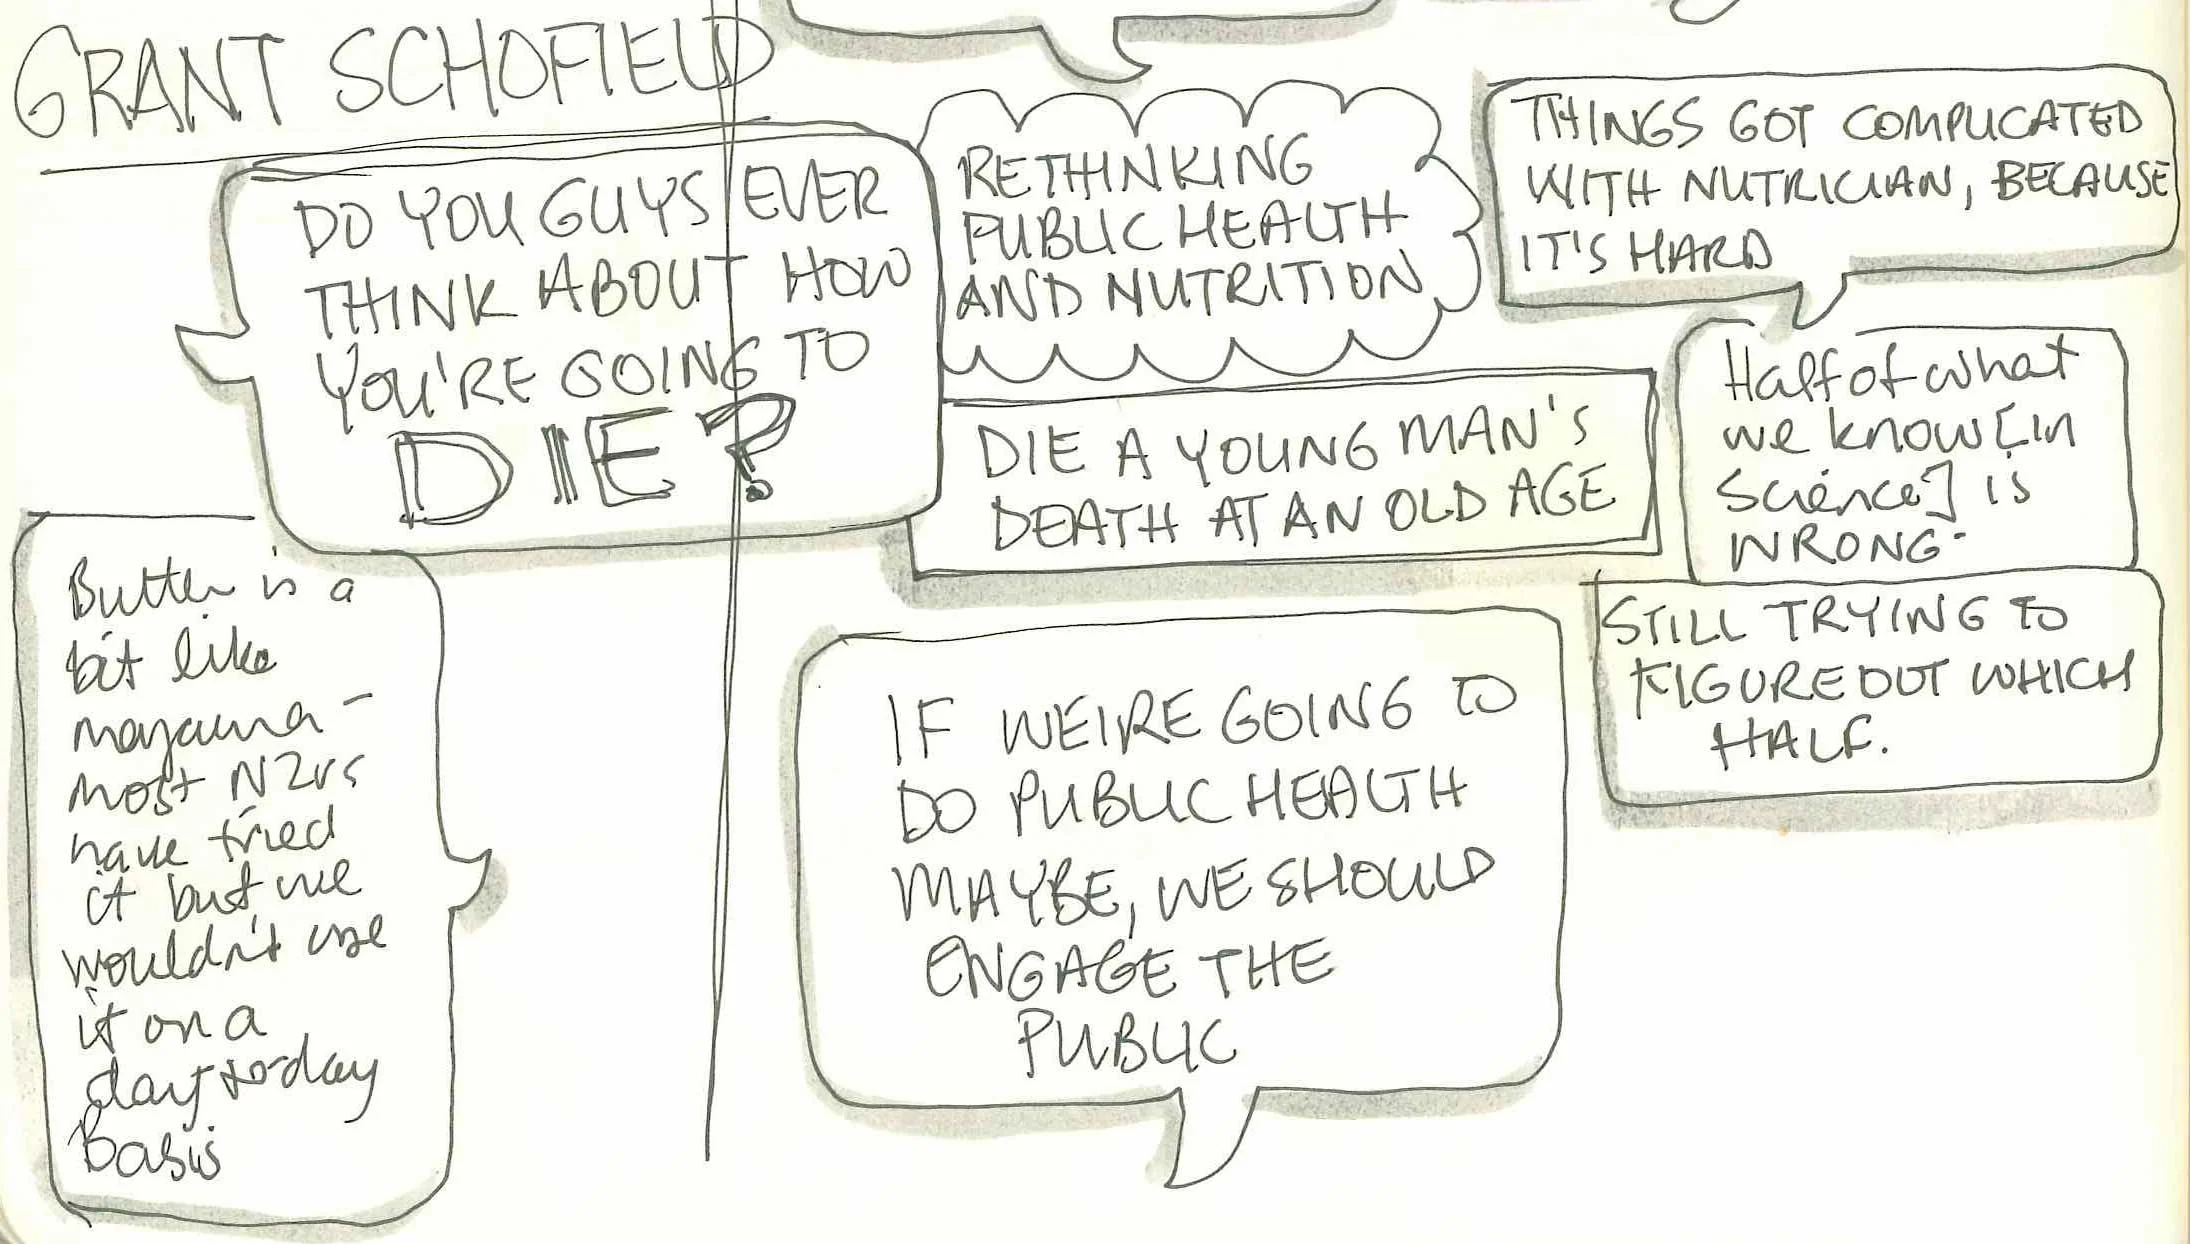 GRANT SCHOFIELD
DO YOU GUYS EVER
THINK ABOUT HOW
YOU'RE GOING TO
DIE?
RETHINKING
PUBLIC HEALTH
AND NUTRITION
THINGS GOT COMPLICATED
WITH NUTRICIAN, BECAUSE
IT'S HARD
Half of what
we know [in
Science] is
WRONG.
STILL TRYING TO
FIGURE OUT WHICH
HALF.
DIE A YOUNG MAN'S
DEATH AT AN OLD AGE
Butter is a
bit like
-
most NZrs
have tried
it but we
wouldn't use
it on a
day to day
Basis
IF WE'RE GOING TO
DO PUBLIC HEALTH
MAYBE, WE SHOULD
ENGAGE THE
PUBLIC